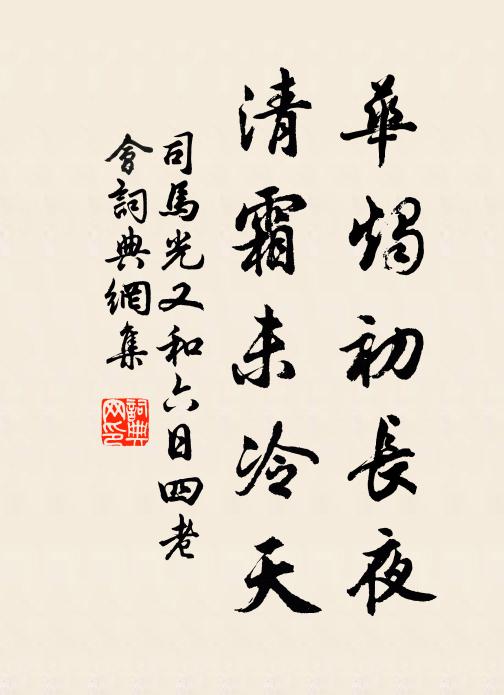 華燭初長夜
清霜未冷天
司馬光又和六日四老
會詞典網集
詞典
網印